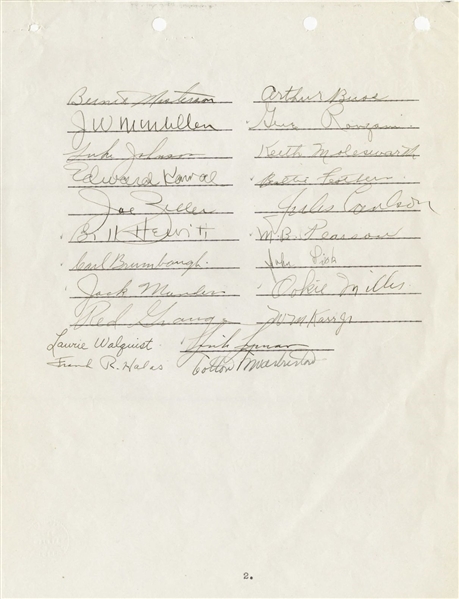 Bernie Masterson Arthur Buss
J W McMullen
Luke Johnsos Keith Molesworth
Edward Kawal
Joe Zeller Jules Carlson
Bill Hewitt M. B. Pearson
Carl Brumbaugh John Sisk
Jack Manders Ookie Miller
Red Grange Wm Karr Jr
Laurie Walquist Link Lyman
Frank R. Halas Cotton Warburton
2.